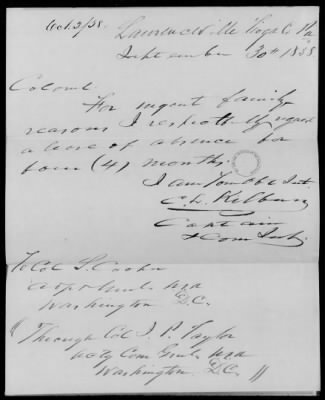 Oct. 2/58.
Lawrenceville Tioga Co Pa
September 30th 1858.
Colonel
For urgent family
reasons I respectfully request
a leave of absence for
four (4) months.
I am Your Obt Svt.
C. L. Kilburn
Captain
& Com Sub.
To Col S. Cooper
Adjt Genl. USA
Washington D.C.
Through Col J. P. Taylor
Actg Com Genl. USA
Washington D.C.